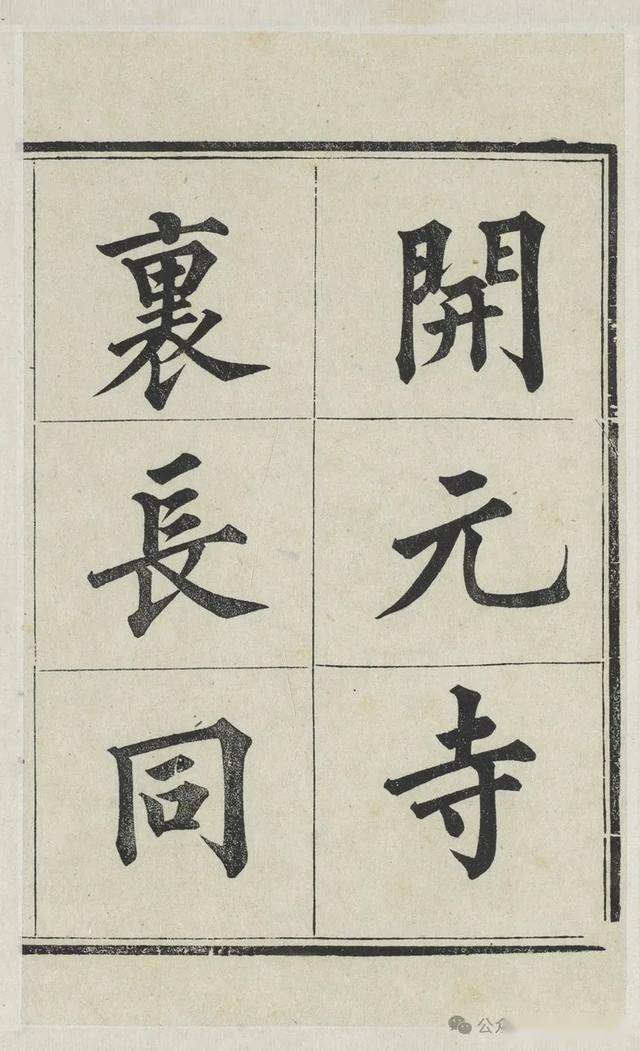 開元寺
裏長同
公众